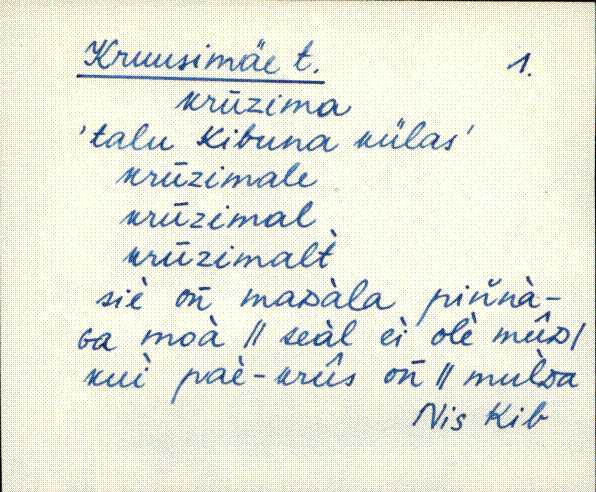 Kruusimäe t. 1.
krūzima
'talu Kibuna külas'
krūzimale
krūzimal
krūzimal̀t
siè on̄ maᴅàla pin̆nà-
ɢa moà || seàl eì olè mûᴅ/
kuì paè-krûs on̄ || mul̀ᴅa
Nis Kib